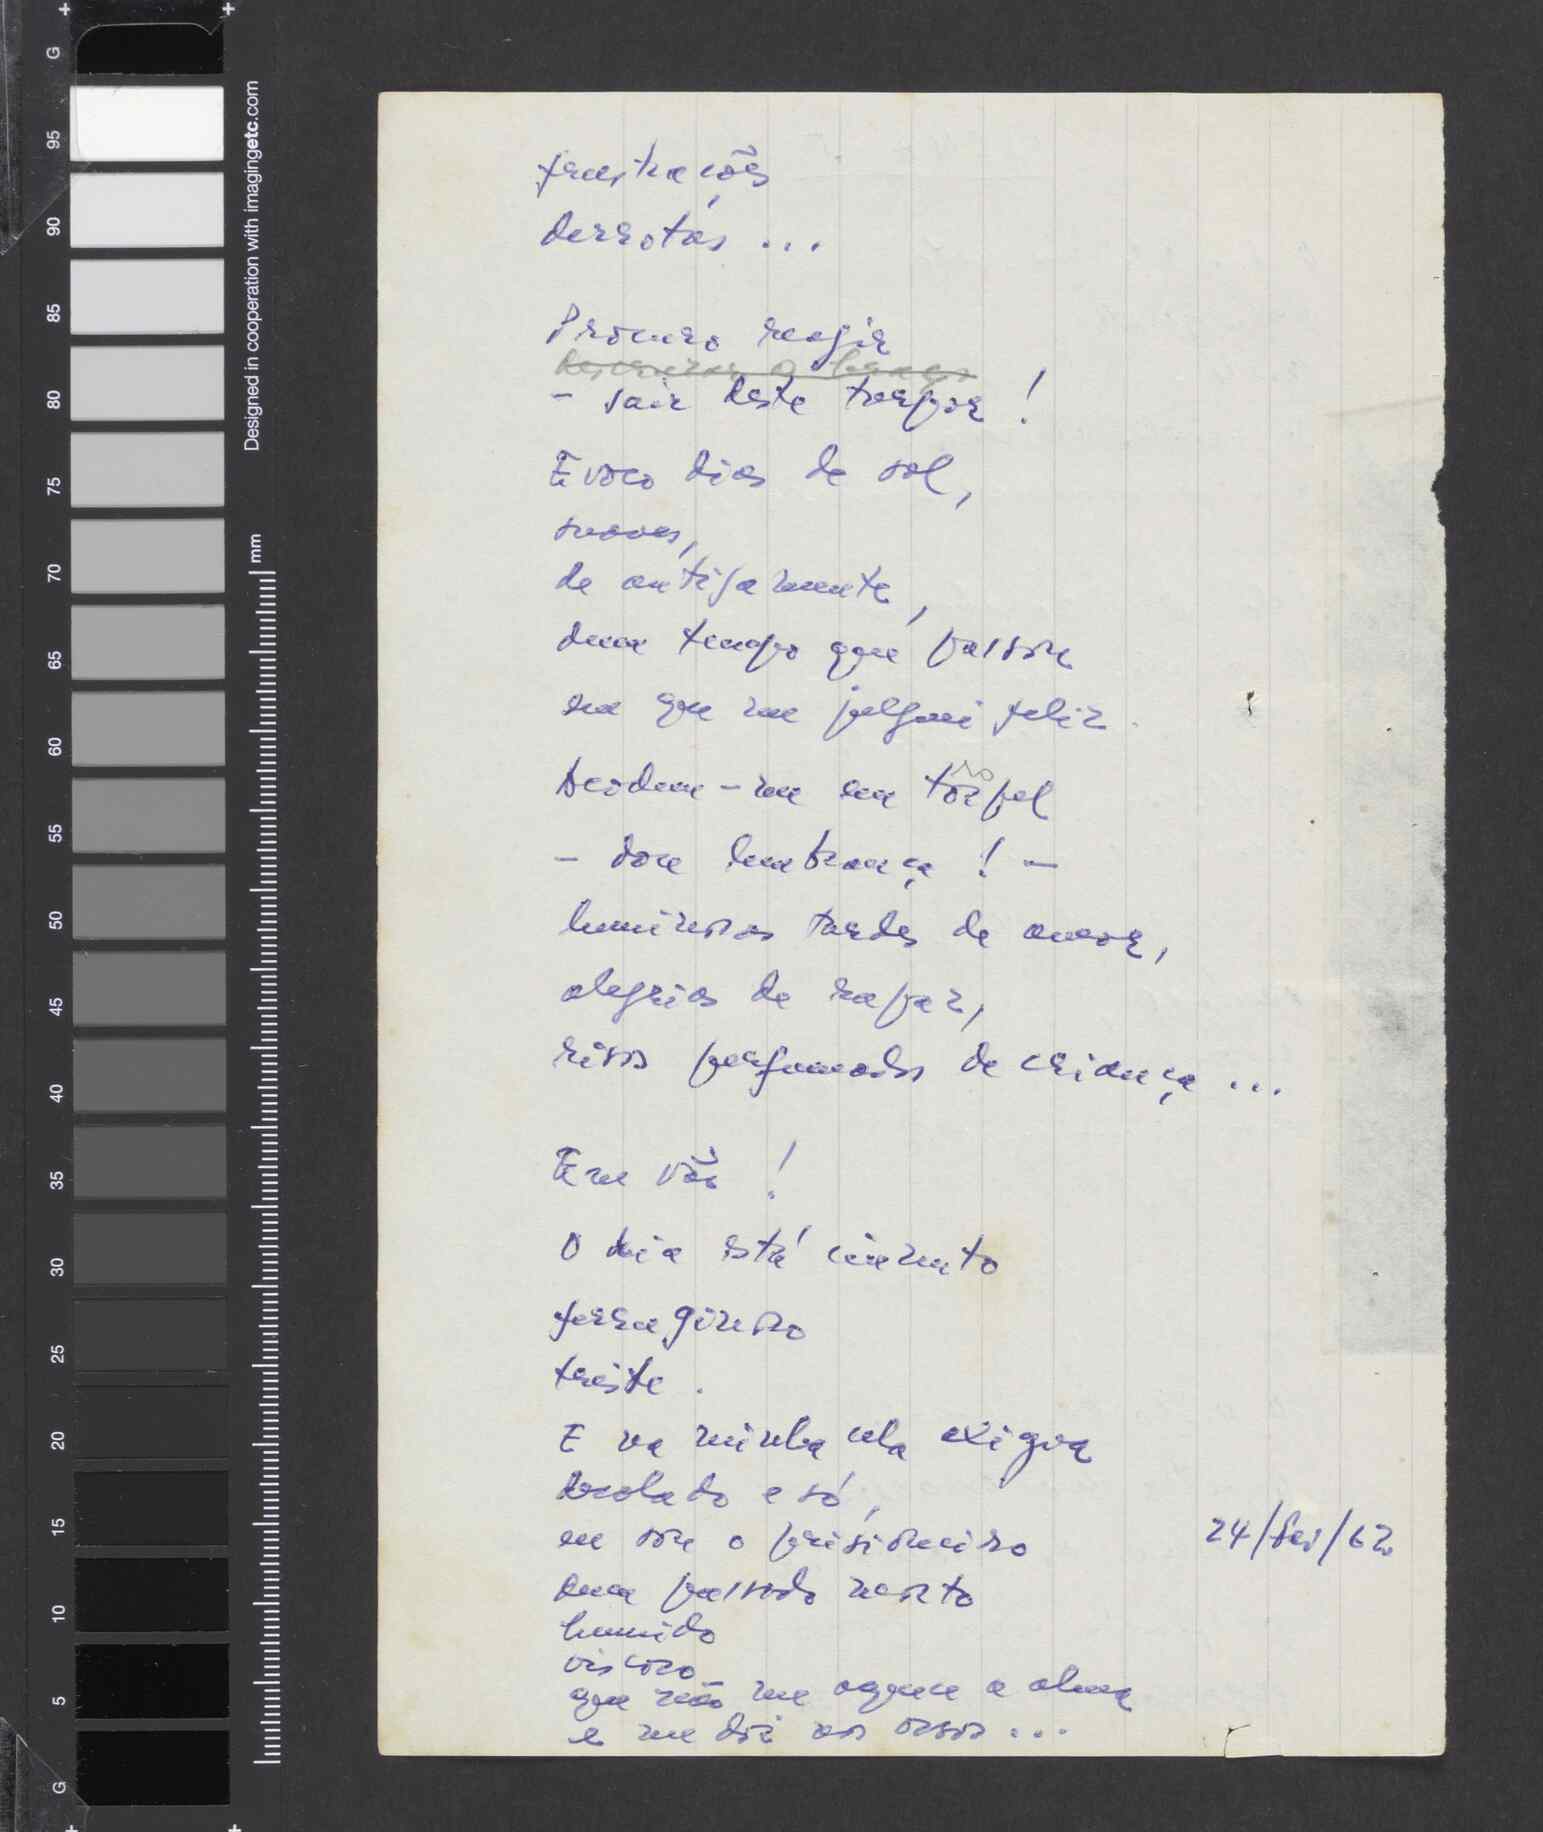 G
95
90
85
80
75
70
65
60
55
50
45
40
35
30
25
20
15
10
5
G
Designed in cooperation with imagingetc.com
mm
frustrações
derrotas ...
Procuro reagir
descerrar o
- sair deste torpor !
Evoco dias de sol,
suaves,
de antigamente,
dum tempo que passou
em que me julguei feliz.
Acodem-me em tropel
- doce lembrança ! -
luminosas tardes de amor,
alegrias de rapaz,
risos perfumados de criança ...
Em vão !
O dia está cinzento
ferruginoso
triste.
E na minha cela exígua
isolado e só,
eu sou o prisioneiro
24/fev/62
dum passado morto
humido
viscoso
que não me aquece a alma
e me dói nos ossos ...